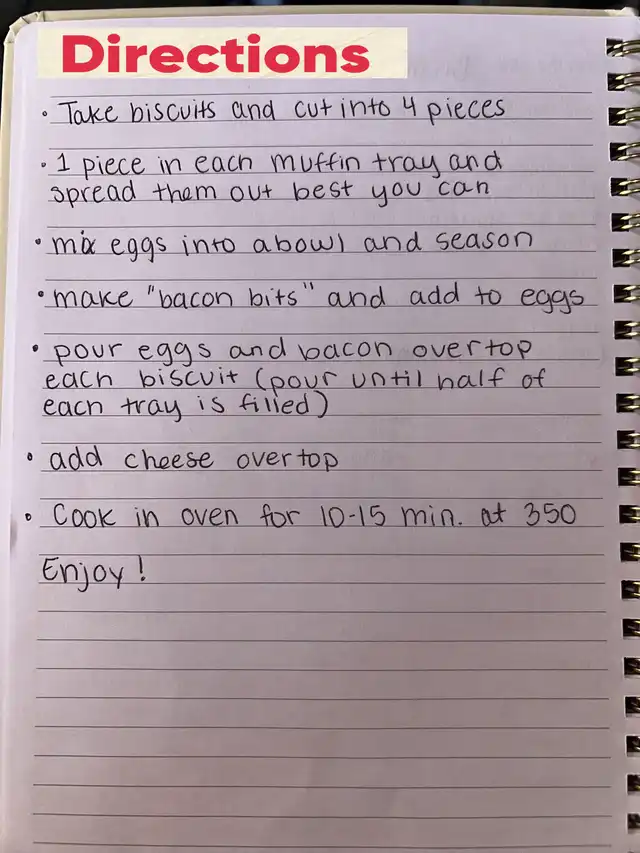 Directions
• Take biscuits and cut into 4 pieces
• 1 piece in each muffin tray and
spread them out best you can
• mix eggs into a bowl and season
• make "bacon bits" and add to eggs
• pour eggs and bacon overtop
each biscuit (pour until half of
each tray is filled)
• add cheese overtop
• Cook in oven for 10-15 min. at 350
Enjoy!